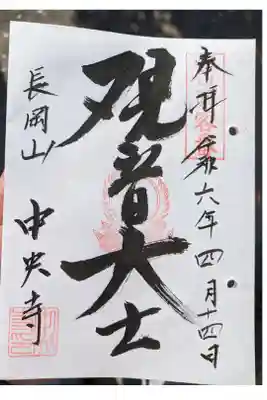 奉拝
六年四月十四日
观音大士
長岡山
中央寺